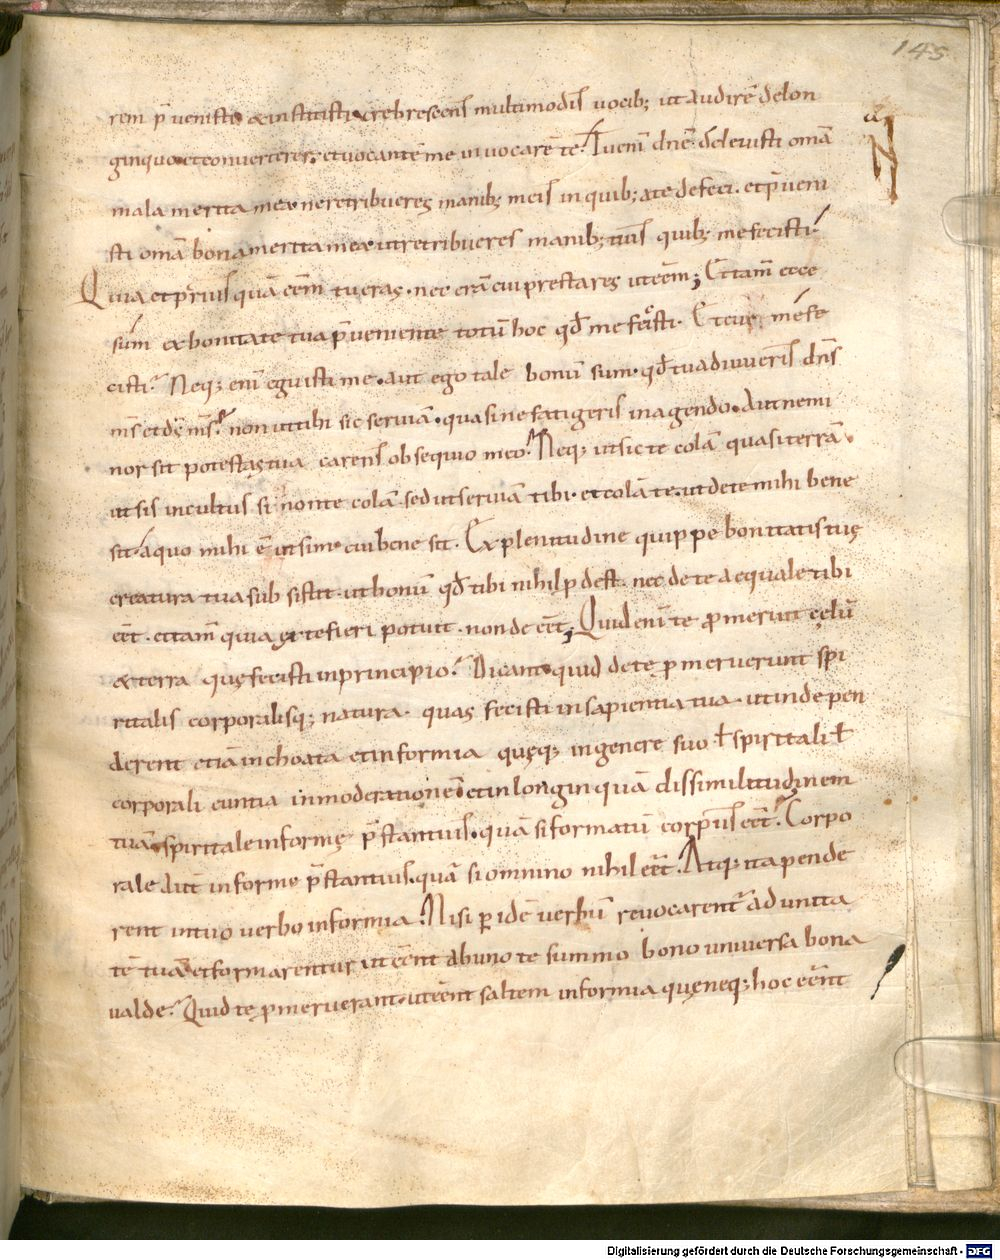 145
rem p̄ uenisti & institisti crebrescens multimodis uocib; ut audirē delon
ginquo et conuerterer. et uocantē me inuocarē te. Tu eni͞m dn̄e deleuisti om̄a
mala merita mea ne retribueres manib; meis in quib; a te defeci. et p̄ueni
sti om̄a bona merita mea ut retribueres manib; tuis quib; me fecisti.
Quia et prius quā eēm tu eras. nec erā cui prestares ut eēm; Et tam̄ ecce
sum ex bonitate tua p̄ueniente totū hoc qd̄ me fecisti. Et unde me fe
cisti. Neq; eni͞m eguisti me. aut ego tale bonū sum. qd̄ tu adiuueris dn̄s
m̄s et d̄s m̄s. non ut tibi sic seruiā. quasi ne fatigeris in agendo. Aut ne mi
nor sit potestas tua carens obsequio meo. Neq; ut sic te colā quasi terrā.
ut sis incultus si non te colā. sed ut seruiā tibi. et colā te. ut de te mihi bene
sit. a quo mihi ē ut sim. cui bene sit. Ex plenitudine quippe bonitatis tuę
creatura tua subsistit. ut bonū qd̄ tibi nihil p̄dest. nec de te aequale tibi
eēt. et tam̄ quia ex te fieri potuit. non deeēt; Quid eni͞m te p̄meruit cęlū
& terra quę fecisti in principio. Dicant quid de te p̄meruerunt spi
ritalis corporalisq; natura. quas fecisti in sapientia tua. ut inde pen
derent etiā inchoata et informia quęq; in genere suo ł spiritali ł
corporali euntia in moderationē et in longinquā dissimilitudinem
tuā. spiritale informe p̄stantius. quā si formatū corpus eēt. Corpo
rale aut̄ informe p̄stantius. quā si omnino nihil eēt. Atq; ita pende
rent in tuo uerbo informia. Nisi p̱ idē uerbū reuocarent̄ ad unita
tē tuā et formarentur. ut eēnt ab uno te summo bono uniuersa bona
ualde. Quid te p̄meruerant. ut eēnt saltem informia quę neq; hoc eēnt
Digitalisierung gefördert durch die Deutsche Forschungsgemeinschaft - DFG